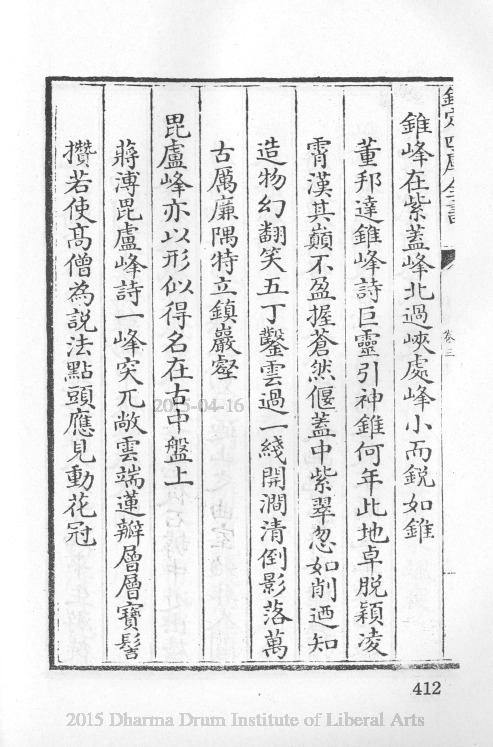 欽定四庫全書
卷三
錐峰在紫蓋峰北過峽處峰小而銳如錐
董邦達錐峰詩巨靈引神錐何年此地卓脫穎凌
霄漢其巔不盈握蒼然偃蓋中紫翠忽如削迺知
造物幻翻笑五丁鑿雲過一綫開澗清倒影落萬
古厲廉隅特立鎮巖壑
毘盧峰亦以形似得名在古中盤上
蔣溥毘盧峰詩一峰突兀敞雲端蓮瓣層層寶髻
攢若使高僧為說法點頭應見動花冠
2015-04-16
412
2015 Dharma Drum Institute of Liberal Arts